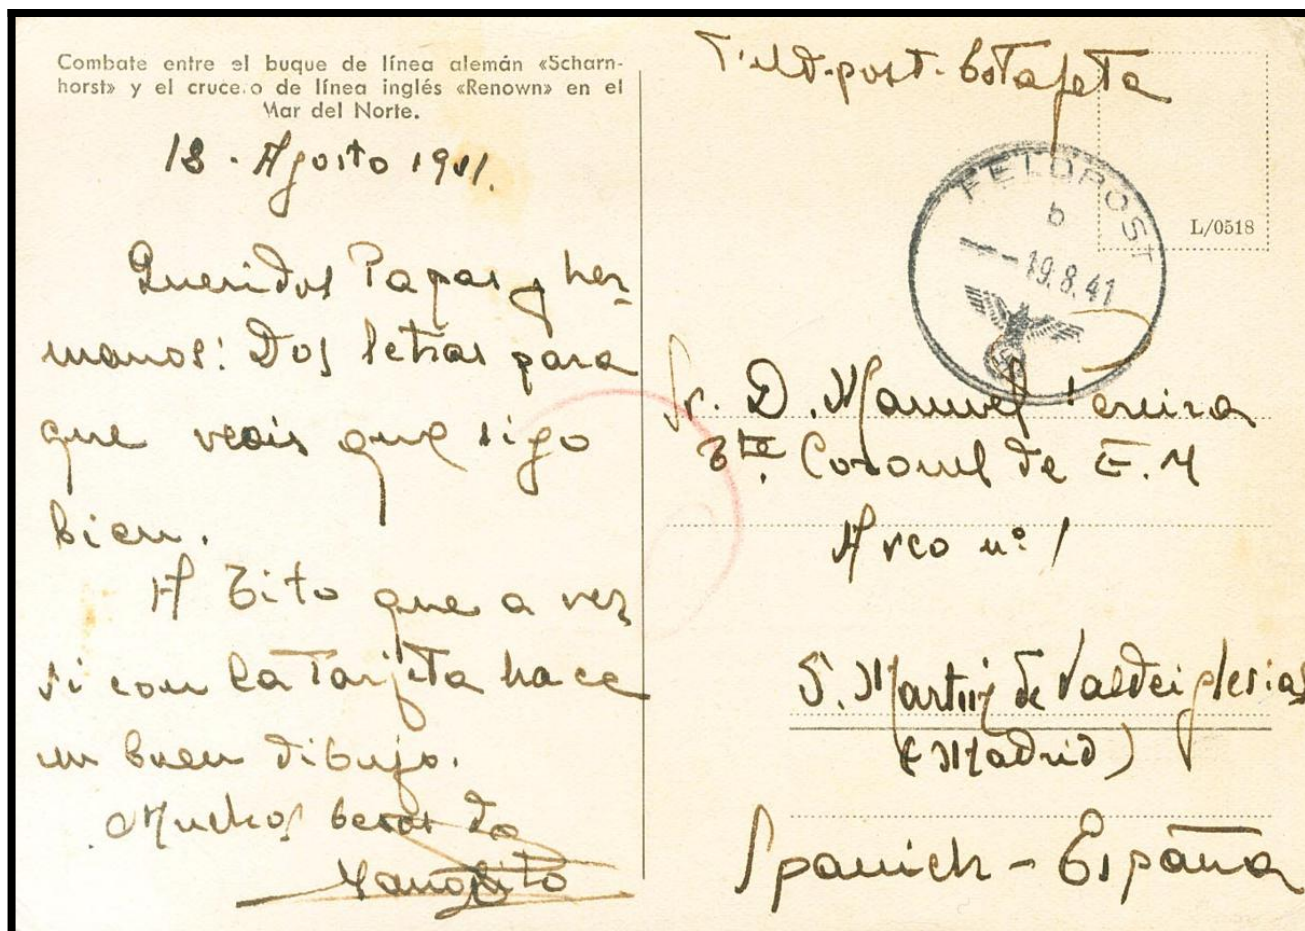 Combate entre el buque de línea alemán «Scharn-
horst» y el crucero de línea inglés «Renown» en el
Mar del Norte.
18 - Agosto 1941.
Queridos Papas y her-
manos: Dos letras para
que veais que sigo
bien.
A Tito que a ver
si con la Tarjeta hace
un buen dibujo.
Muchos besos de
Manolito
Feld-post-Estafeta
L/0518
FELDPOST
b
--19.8.41
Sr. D. Manuel Pereira
Tte. Coronel de E.M
Arco nº 1
S. Martin de Valdeiglesias
(Madrid)
Spanich - España